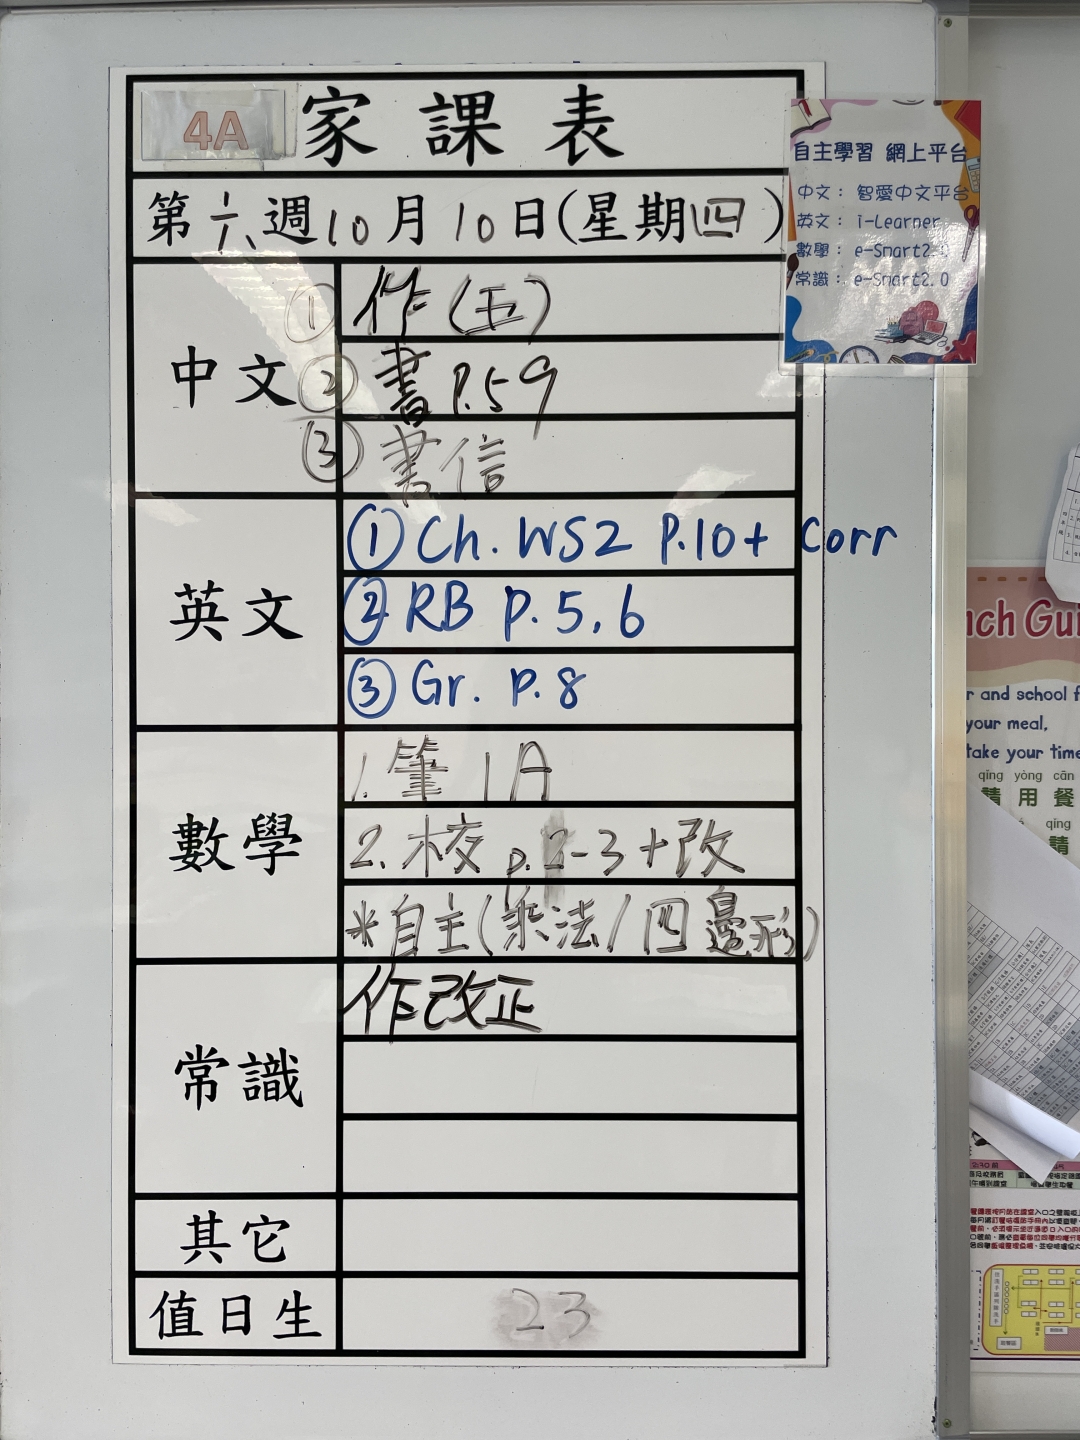 4A 家課表
第六週10月10日(星期四)
中文
① 作(五)
② 書 P.59
③ 書信
英文
① Ch. WS2 P.10 + Corr
② RB P.5,6
③ Gr. P.8
數學
1. 筆 1A
2. 校 p.2-3+改
*自主(乘法/四邊形)
常識
作改正
其它
值日生
23
自主學習 網上平台
中文： 智愛中文平台
英文： i-Learner
數學： e-Smart2.0
常識： e-Smart2.0
nch Gui
r and school f
your meal,
take your time
qǐng yòng cān
請 用 餐
qǐng
請